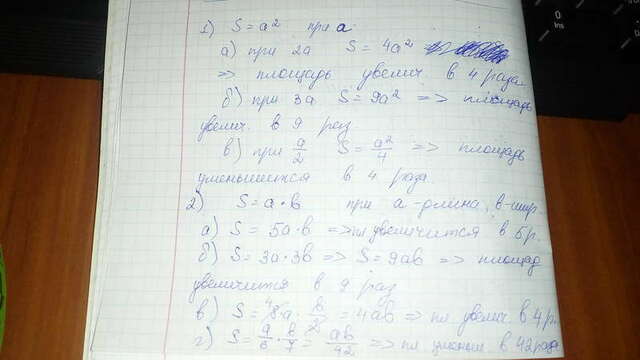 1) S = a² при a
а) при 2a S = 4a²
=> площадь увелич. в 4 раза.
б) при 3a S = 9a² => площадь
увелич. в 9 раз
в) при a/2 S = a²/4 => площадь
уменьшится в 4 раза
2) S = a · в при a - длина, в - шир.
а) S = 5a · в => пл увеличится в 5 р.
б) S = 3a · 3в => S = 9aв => площад
увеличится в 9 раз
в) S = 8a · в/2 = 4aв => пл увелич. в 4 р.
г) S = a/6 · в/7 = aв/42 => пл уменьш. в 42 раза
0
Ins